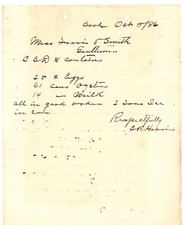 Oct 5/86
Mess Irvin & Smith
Gentlemen
C & D # contains
20 # Eggs
61 cans Oysters
14 " Milk
all in good order 2 Tons Ice
in car
Respectfully